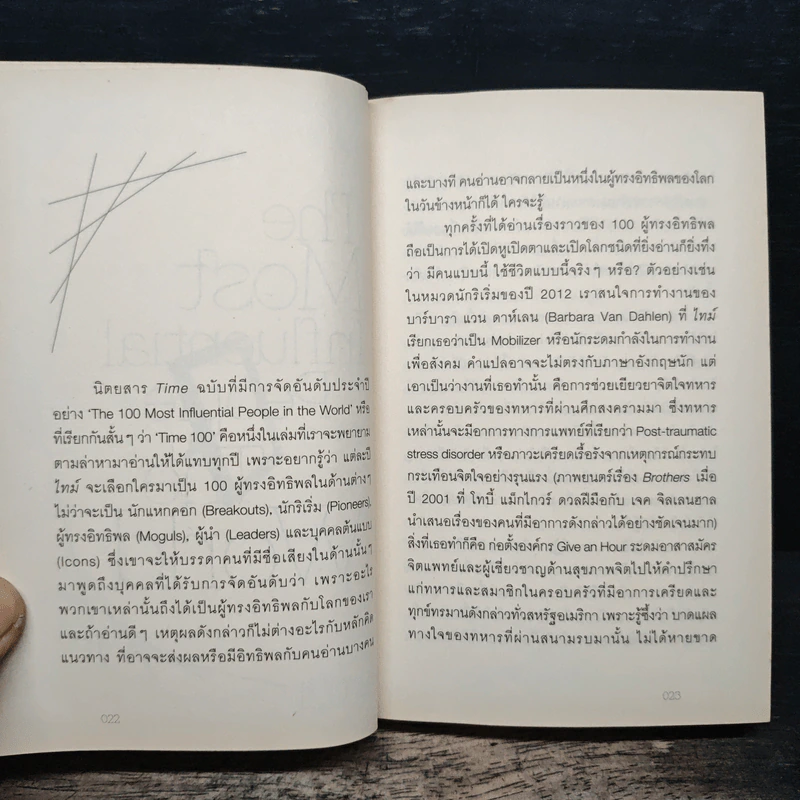 นิตยสาร Time ฉบับที่มีการจัดอันดับประจำปี
อย่าง ‘The 100 Most Influential People in the World’ หรือ
ที่เรียกกันสั้นๆ ว่า ‘Time 100’ คือหนึ่งในเล่มที่เราจะพยายาม
ตามล่าหามาอ่านให้ได้แทบทุกปี เพราะอยากรู้ว่า แต่ละปี
ไทม์ จะเลือกใครมาเป็น 100 ผู้ทรงอิทธิพลในด้านต่างๆ
ไม่ว่าจะเป็น นักแหกคอก (Breakouts), นักริเริ่ม (Pioneers),
ผู้ทรงอิทธิพล (Moguls), ผู้นำ (Leaders) และบุคคลต้นแบบ
(Icons) ซึ่งเขาจะให้บรรดาคนที่มีชื่อเสียงในด้านนั้นๆ
มาพูดถึงบุคคลที่ได้รับการจัดอันดับว่า เพราะอะไร
พวกเขาเหล่านั้นถึงได้เป็นผู้ทรงอิทธิพลกับโลกของเรา
และถ้าอ่านดีๆ เหตุผลดังกล่าวก็ไม่ต่างอะไรกับหลักคิด
แนวทาง ที่อาจจะส่งผลหรือมีอิทธิพลกับคนอ่านบางคน
022
และบางที คนอ่านอาจกลายเป็นหนึ่งในผู้ทรงอิทธิพลของโลก
ในวันข้างหน้าก็ได้ ใครจะรู้
ทุกครั้งที่ได้อ่านเรื่องราวของ 100 ผู้ทรงอิทธิพล
ถือเป็นการได้เปิดหูเปิดตาและเปิดโลกชนิดที่ยิ่งอ่านก็ยิ่งทึ่ง
ว่า มีคนแบบนี้ ใช้ชีวิตแบบนี้จริงๆ หรือ? ตัวอย่างเช่น
ในหมวดนักริเริ่มของปี 2012 เราสนใจการทำงานของ
บาร์บารา แวน ดาห์เลน (Barbara Van Dahlen) ที่ ไทม์
เรียกเธอว่าเป็น Mobilizer หรือนักระดมกำลังในการทำงาน
เพื่อสังคม คำแปลอาจจะไม่ตรงกับภาษาอังกฤษนัก แต่
เอาเป็นว่างานที่เธอทำนั้น คือการช่วยเยียวยาจิตใจทหาร
และครอบครัวของทหารที่ผ่านศึกสงครามมา ซึ่งทหาร
เหล่านั้นจะมีอาการทางการแพทย์ที่เรียกว่า Post-traumatic
stress disorder หรือภาวะเครียดเรื้อรังจากเหตุการณ์กระทบ
กระเทือนจิตใจอย่างรุนแรง (ภาพยนตร์เรื่อง Brothers เมื่อ
ปี 2001 ที่ โทบี้ แม็กไกวร์ ดวลฝีมือกับ เจค จิลเลนฮาล
นำเสนอเรื่องของคนที่มีอาการดังกล่าวได้อย่างชัดเจนมาก)
สิ่งที่เธอทำก็คือ ก่อตั้งองค์กร Give an Hour ระดมอาสาสมัคร
จิตแพทย์และผู้เชี่ยวชาญด้านสุขภาพจิตไปให้คำปรึกษา
แก่ทหารและสมาชิกในครอบครัวที่มีอาการเครียดและ
ทุกข์ทรมานดังกล่าวทั่วสหรัฐอเมริกา เพราะรู้ซึ้งว่า บาดแผล
ทางใจของทหารที่ผ่านสนามรบมานั้น ไม่ได้หายขาด
023